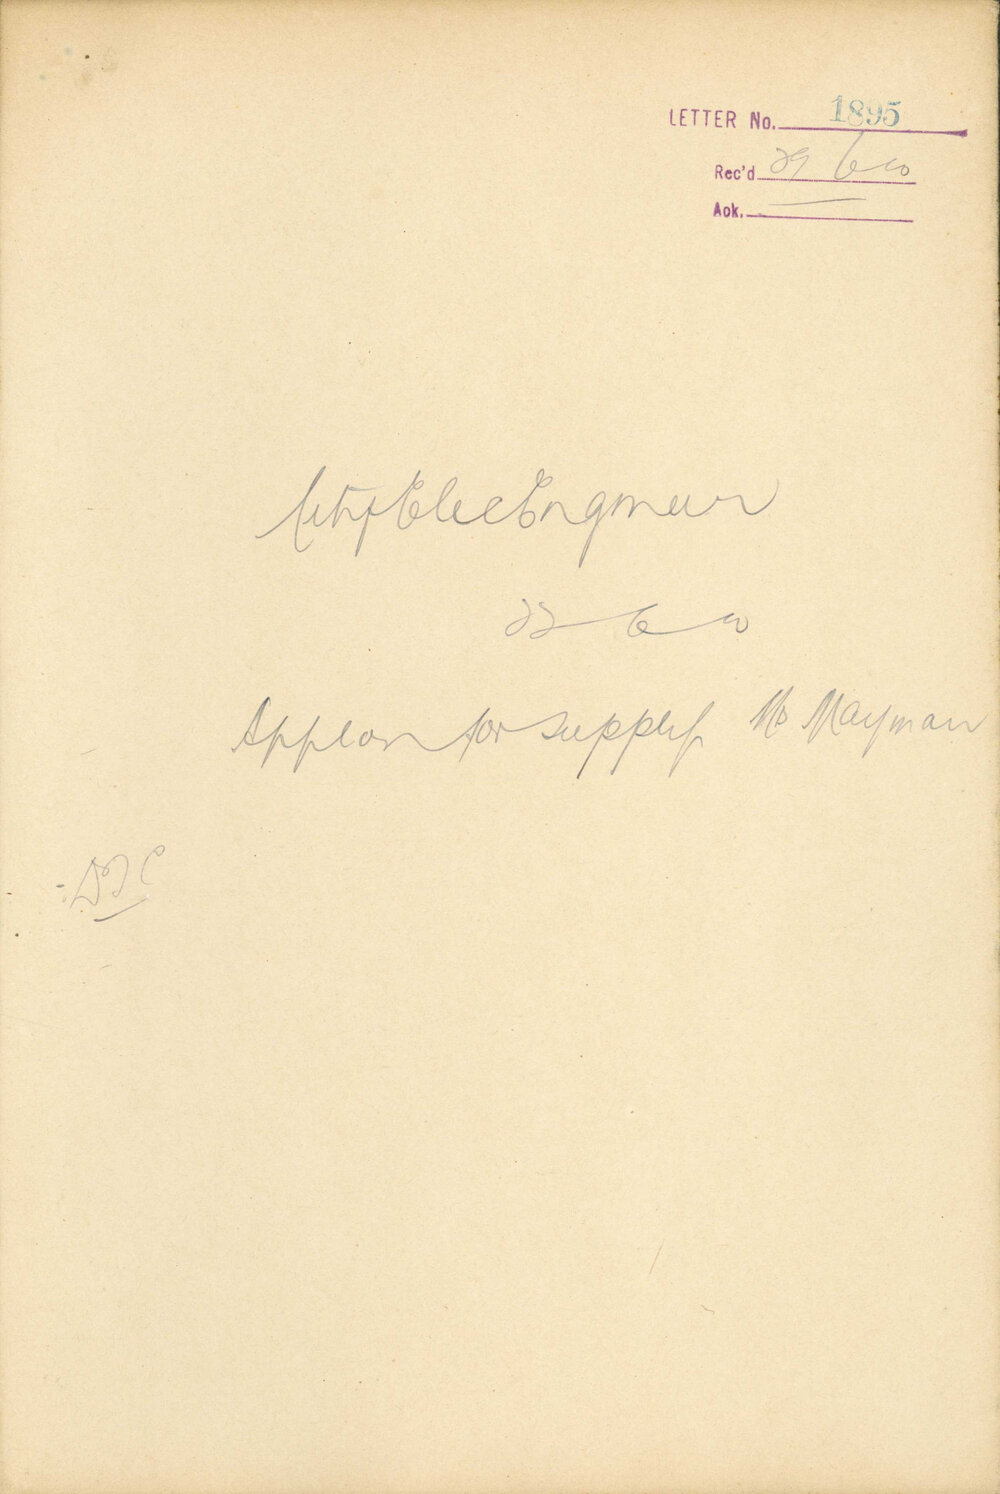 LETTER No. 1895
Rec'd 29 6 10
Ack.
City Elec Engineer
22 6 10
Applcon for supply Mr Mayman